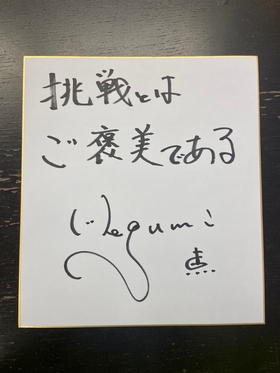 挑戦とは
ご褒美である
Megumi
恵